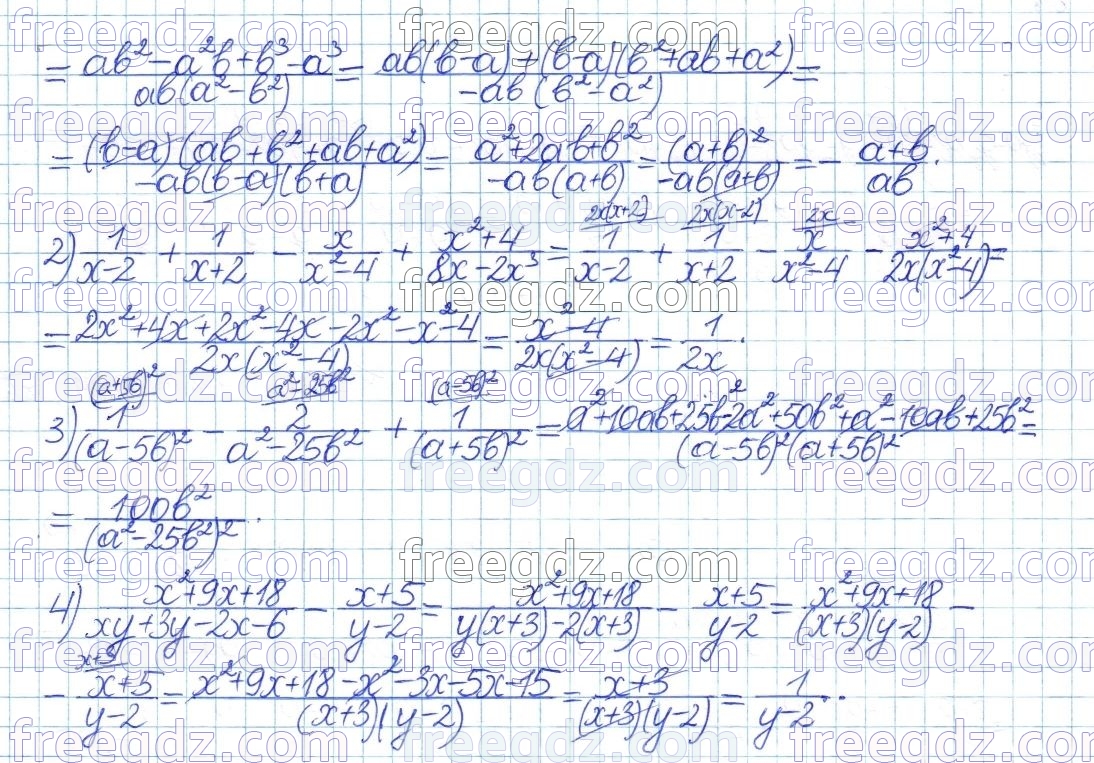 = (ab² - a²b + b³ - a³)/(ab(a² - b²)) = (ab(b-a) + (b-a)(b² + ab + a²))/(-ab(b² - a²)) =
= ((b-a)(ab + b² + ab + a²))/(-ab(b-a)(b+a)) = (a² + 2ab + b²)/(-ab(a+b)) = (a+b)²/(-ab(a+b)) = - (a+b)/(ab).
2) 1/(x-2) + 1/(x+2) - x/(x²-4) + (x²+4)/(8x-2x³) = 2x(x+2) 1/(x-2) + 2x(x-2) 1/(x+2) - 2x x/(x²-4) - (x²+4)/(2x(x²-4)) =
= (2x² + 4x + 2x² - 4x - 2x² - x² - 4)/(2x(x²-4)) = (x²-4)/(2x(x²-4)) = 1/(2x).
3) (a+5b)² 1/(a-5b)² - a²-25b² 2/(a²-25b²) + (a-5b)² 1/(a+5b)² = (a²+10ab+25b²-2a²+50b²+a²-10ab+25b²)/((a-5b)²(a+5b)²) =
= 100b²/(a²-25b²)².
4) (x²+9x+18)/(xy+3y-2x-6) - (x+5)/(y-2) = (x²+9x+18)/(y(x+3)-2(x+3)) - (x+5)/(y-2) = (x²+9x+18)/((x+3)(y-2)) -
- x+3 (x+5)/(y-2) = (x²+9x+18-x²-3x-5x-15)/((x+3)(y-2)) = (x+3)/((x+3)(y-2)) = 1/(y-2).
freegdz.com freegdz.com freegdz.com